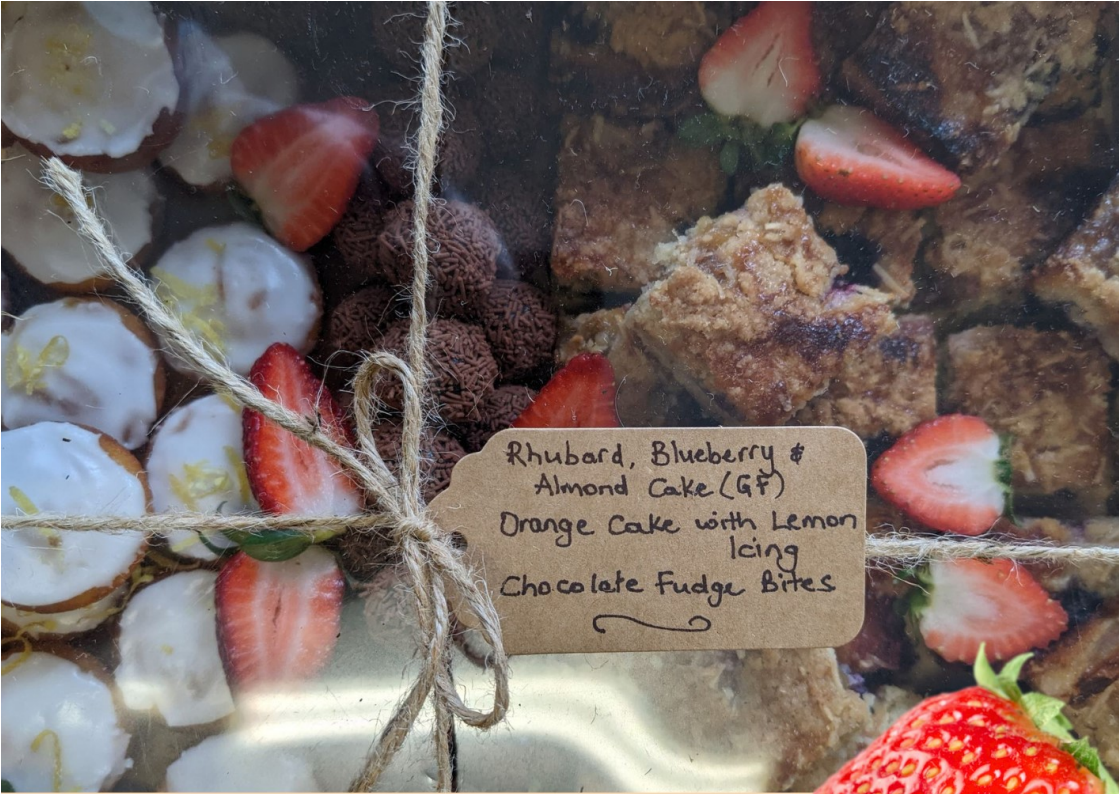 Rhubard, Blueberry &
Almond Cake (GF)
Orange Cake with Lemon
Icing
Chocolate Fudge Bites